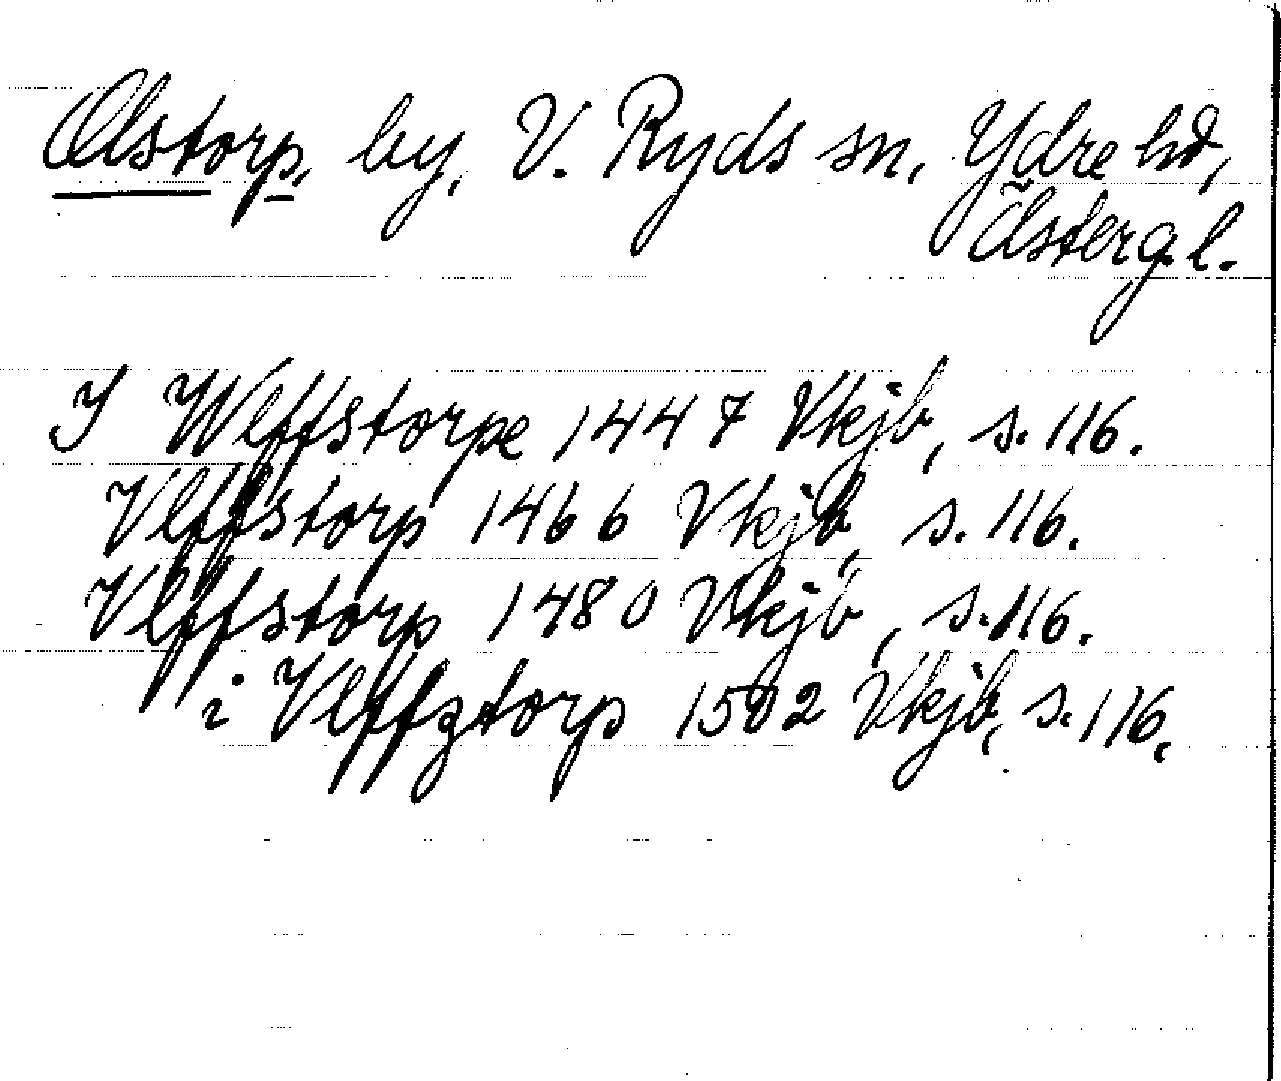 Olstorp, by, V. Ryds sn, Ydre hd,
Östergl.
I Wlffstorpe 1447 Vkjb, s. 116.
Vlffstorp 1466 Vkjb, s. 116.
Vlffstorp 1480 Vkjb, s. 116.
i Vlffztorp 1502 Vkjb, s. 116.